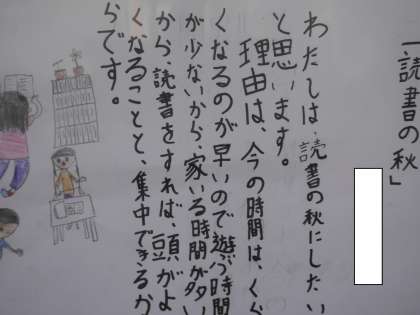 「読書の秋」
わたしは、読書の秋にしたい
と思います。
理由は、今の時間は、くら
くなるのが早いので遊ぶ時間
が少ないから、家いる時間が多い
から、読書をすれば、頭がよ
くなることと、集中できるか
らです。